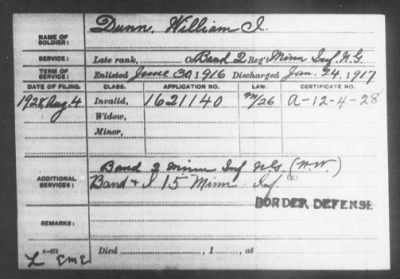 NAME OF SOLDIER: Dunn, William I.
SERVICE: Late rank, Band 2 Reg't Minn Inf N.G.
TERM OF SERVICE: Enlisted June 30, 1916 Discharged Jan. 24, 1917
DATE OF FILING. CLASS. APPLICATION NO. LAW. CERTIFICATE NO.
1928, Aug. 4 Invalid, 1621140 A-12-4-28
Widow,
Minor,
ADDITIONAL SERVICES: Band 2 Minn Inf N.G. (W.W.)
Band & I 15 Minn Inf
BORDER DEFENSE
REMARKS:
Died , 1 , at